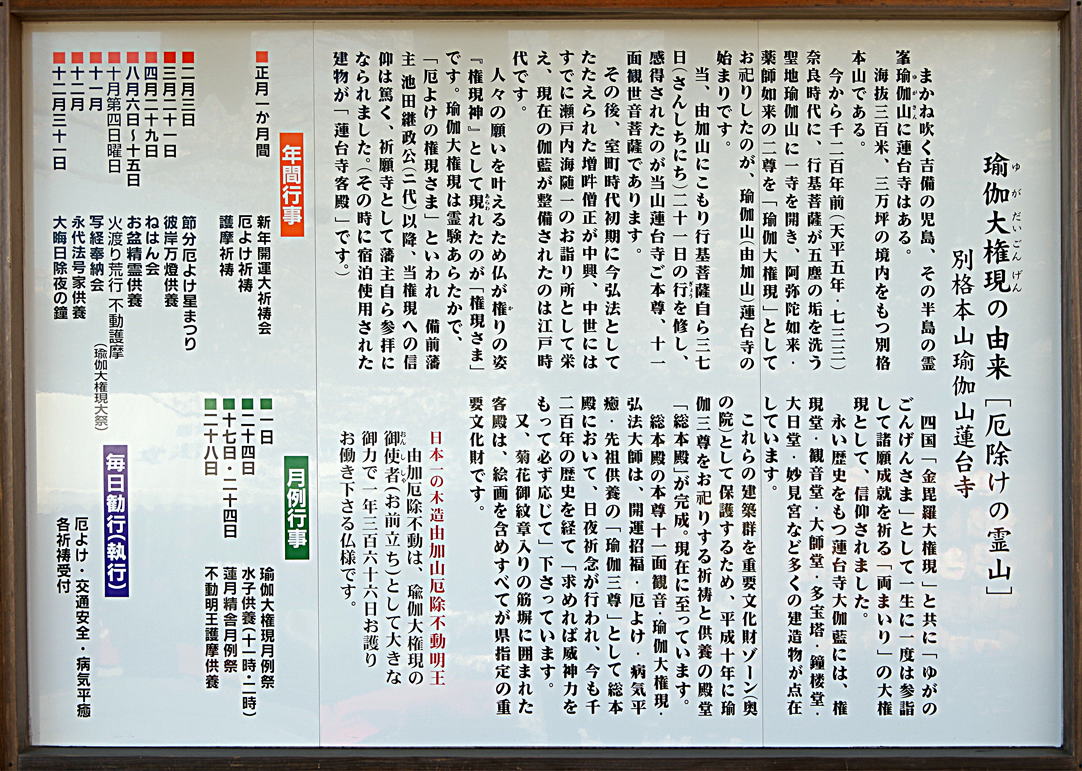 瑜伽大権現の由来［厄除けの霊山］
別格本山瑜伽山蓮台寺
まかね吹く吉備の児島、その半島の霊
峯瑜伽山に蓮台寺はある。
海抜三百米、三万坪の境内をもつ別格
本山である。
今から千二百年前（天平五年・七三三）
奈良時代に、行基菩薩が五塵の垢を洗う
聖地瑜伽山に一寺を開き、阿弥陀如来・
薬師如来の二尊を「瑜伽大権現」として
お祀りしたのが、瑜伽山（由加山）蓮台寺の
始まりです。
当、由加山にこもり行基菩薩自ら三七
日（さんしちにち）二十一日の行を修し、
感得されたのが当山蓮台寺ご本尊、十一
面観世音菩薩であります。
その後、室町時代初期に今弘法として
たたえられた増吽僧正が中興、中世には
すでに瀬戸内海随一のお詣り所として栄
え、現在の伽藍が整備されたのは江戸時
代です。
人々の願いを叶えるため仏が権りの姿
『権現神』として現れたのが「権現さま」
です。瑜伽大権現は霊験あらたかで、
「厄よけの権現さま」といわれ　備前藩
主 池田継政公（三代）以降、当権現への信
仰は篤く、祈願寺として藩主自ら参拝に
なられました。（その時に宿泊使用された
建物が「蓮台寺客殿」です。）
四国「金毘羅大権現」と共に「ゆがの
ごんげんさま」として一生に一度は参詣
して諸願成就を祈る「両まいり」の大権
現として、信仰されました。
永い歴史をもつ蓮台寺大伽藍には、権
現堂・観音堂・大師堂・多宝塔・鐘楼堂・
大日堂・妙見宮など多くの建造物が点在
しています。
これらの建築群を重要文化財ゾーン（奥
の院）として保護するため、平成十年に瑜
伽三尊をお祀りする祈祷と供養の殿堂
「総本殿」が完成。現在に至っています。
総本殿の本尊十一面観音・瑜伽大権現・
弘法大師は、開運招福・厄よけ・病気平
癒・先祖供養の「瑜伽三尊」として総本
殿において、日夜祈念が行われ、今も千
二百年の歴史を経て「求めれば威神力を
もって必ず応じて」下さっています。
又、菊花御紋章入りの筋塀に囲まれた
客殿は、絵画を含めすべてが県指定の重
要文化財です。
日本一の木造由加山厄除不動明王
由加厄除不動は、瑜伽大権現の
御使者（お前立ち）として大きな
御力で一年三百六十六日お護り
お働き下さる仏様です。
年間行事
正月一か月間　新年開運大祈祷会
厄よけ祈祷
護摩祈祷
二月三日　節分厄よけ星まつり
三月二十一日　彼岸万燈供養
四月二十九日　ねはん会
八月六日〜十五日　お盆精霊供養
十月第四日曜日　火渡り荒行 不動護摩（瑜伽大権現大祭）
十一月　写経奉納会
十二月　永代法号家供養
十二月三十一日　大晦日除夜の鐘
月例行事
一日　瑜伽大権現月例祭
二十四日　水子供養（十一時・二時）
十七日・二十四日　蓮月精舎月例祭
二十八日　不動明王護摩供養
毎日勧行（執行）
厄よけ・交通安全・病気平癒
各祈祷受付